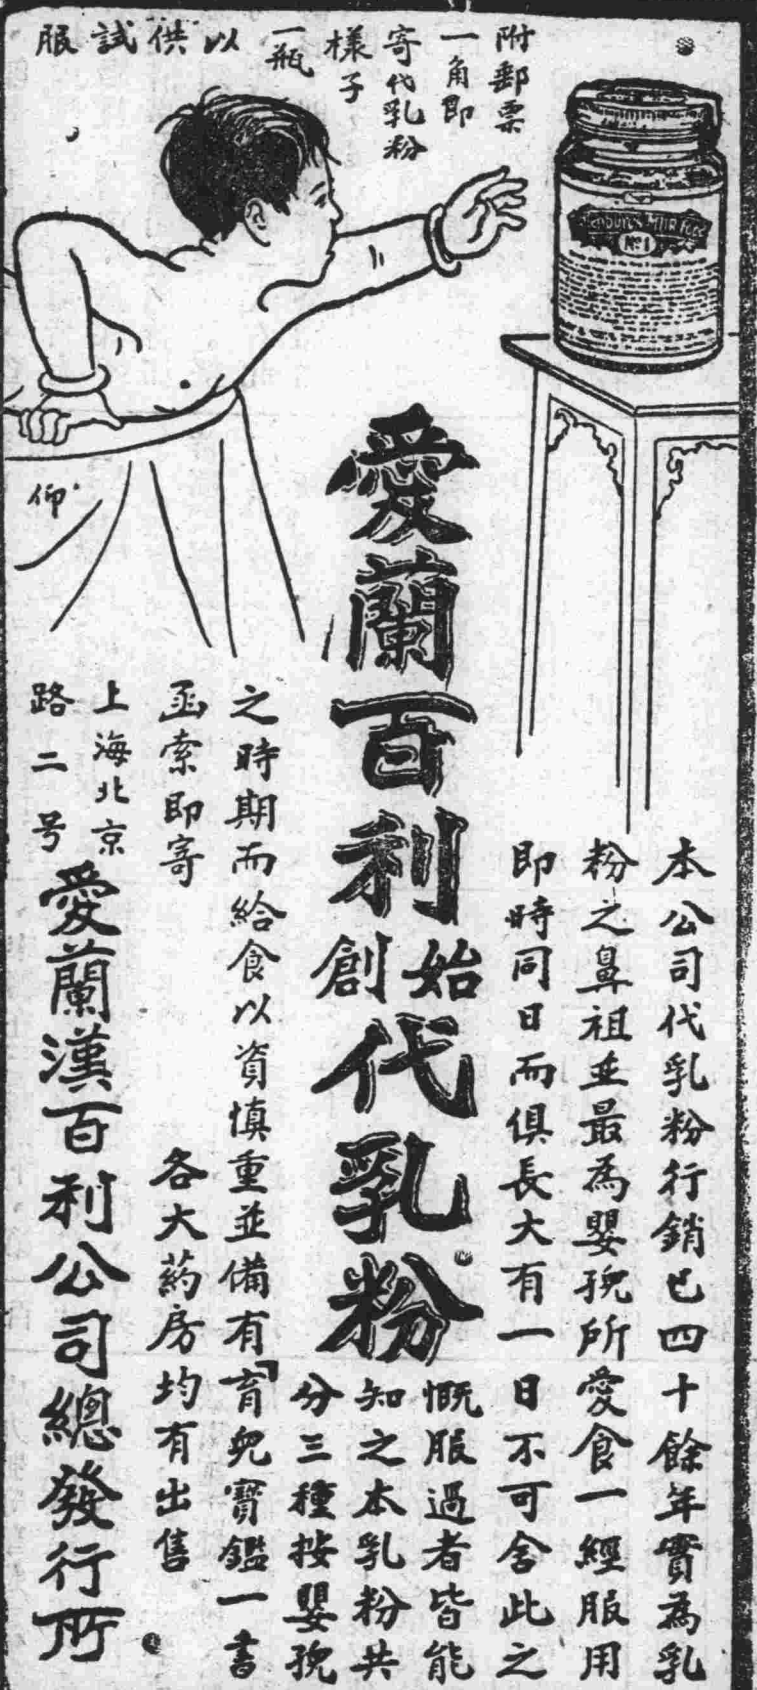 附郵票
一角即
寄代乳粉
樣子
一瓶
以供試服
No 1
仰
愛蘭百利
始創
代乳粉
本公司代乳粉行銷已四十餘年實為乳
粉之鼻祖並最為嬰孩所愛食一經服用
即時同日而俱長大有一日不可舍此之
慨服過者皆能
知之本乳粉共
分三種按嬰孩
之時期而給食以資慎重並備有「育兒寶鑑一書
函索即寄
各大葯房均有出售
上海北京
路二号
愛蘭漢百利公司總發行所